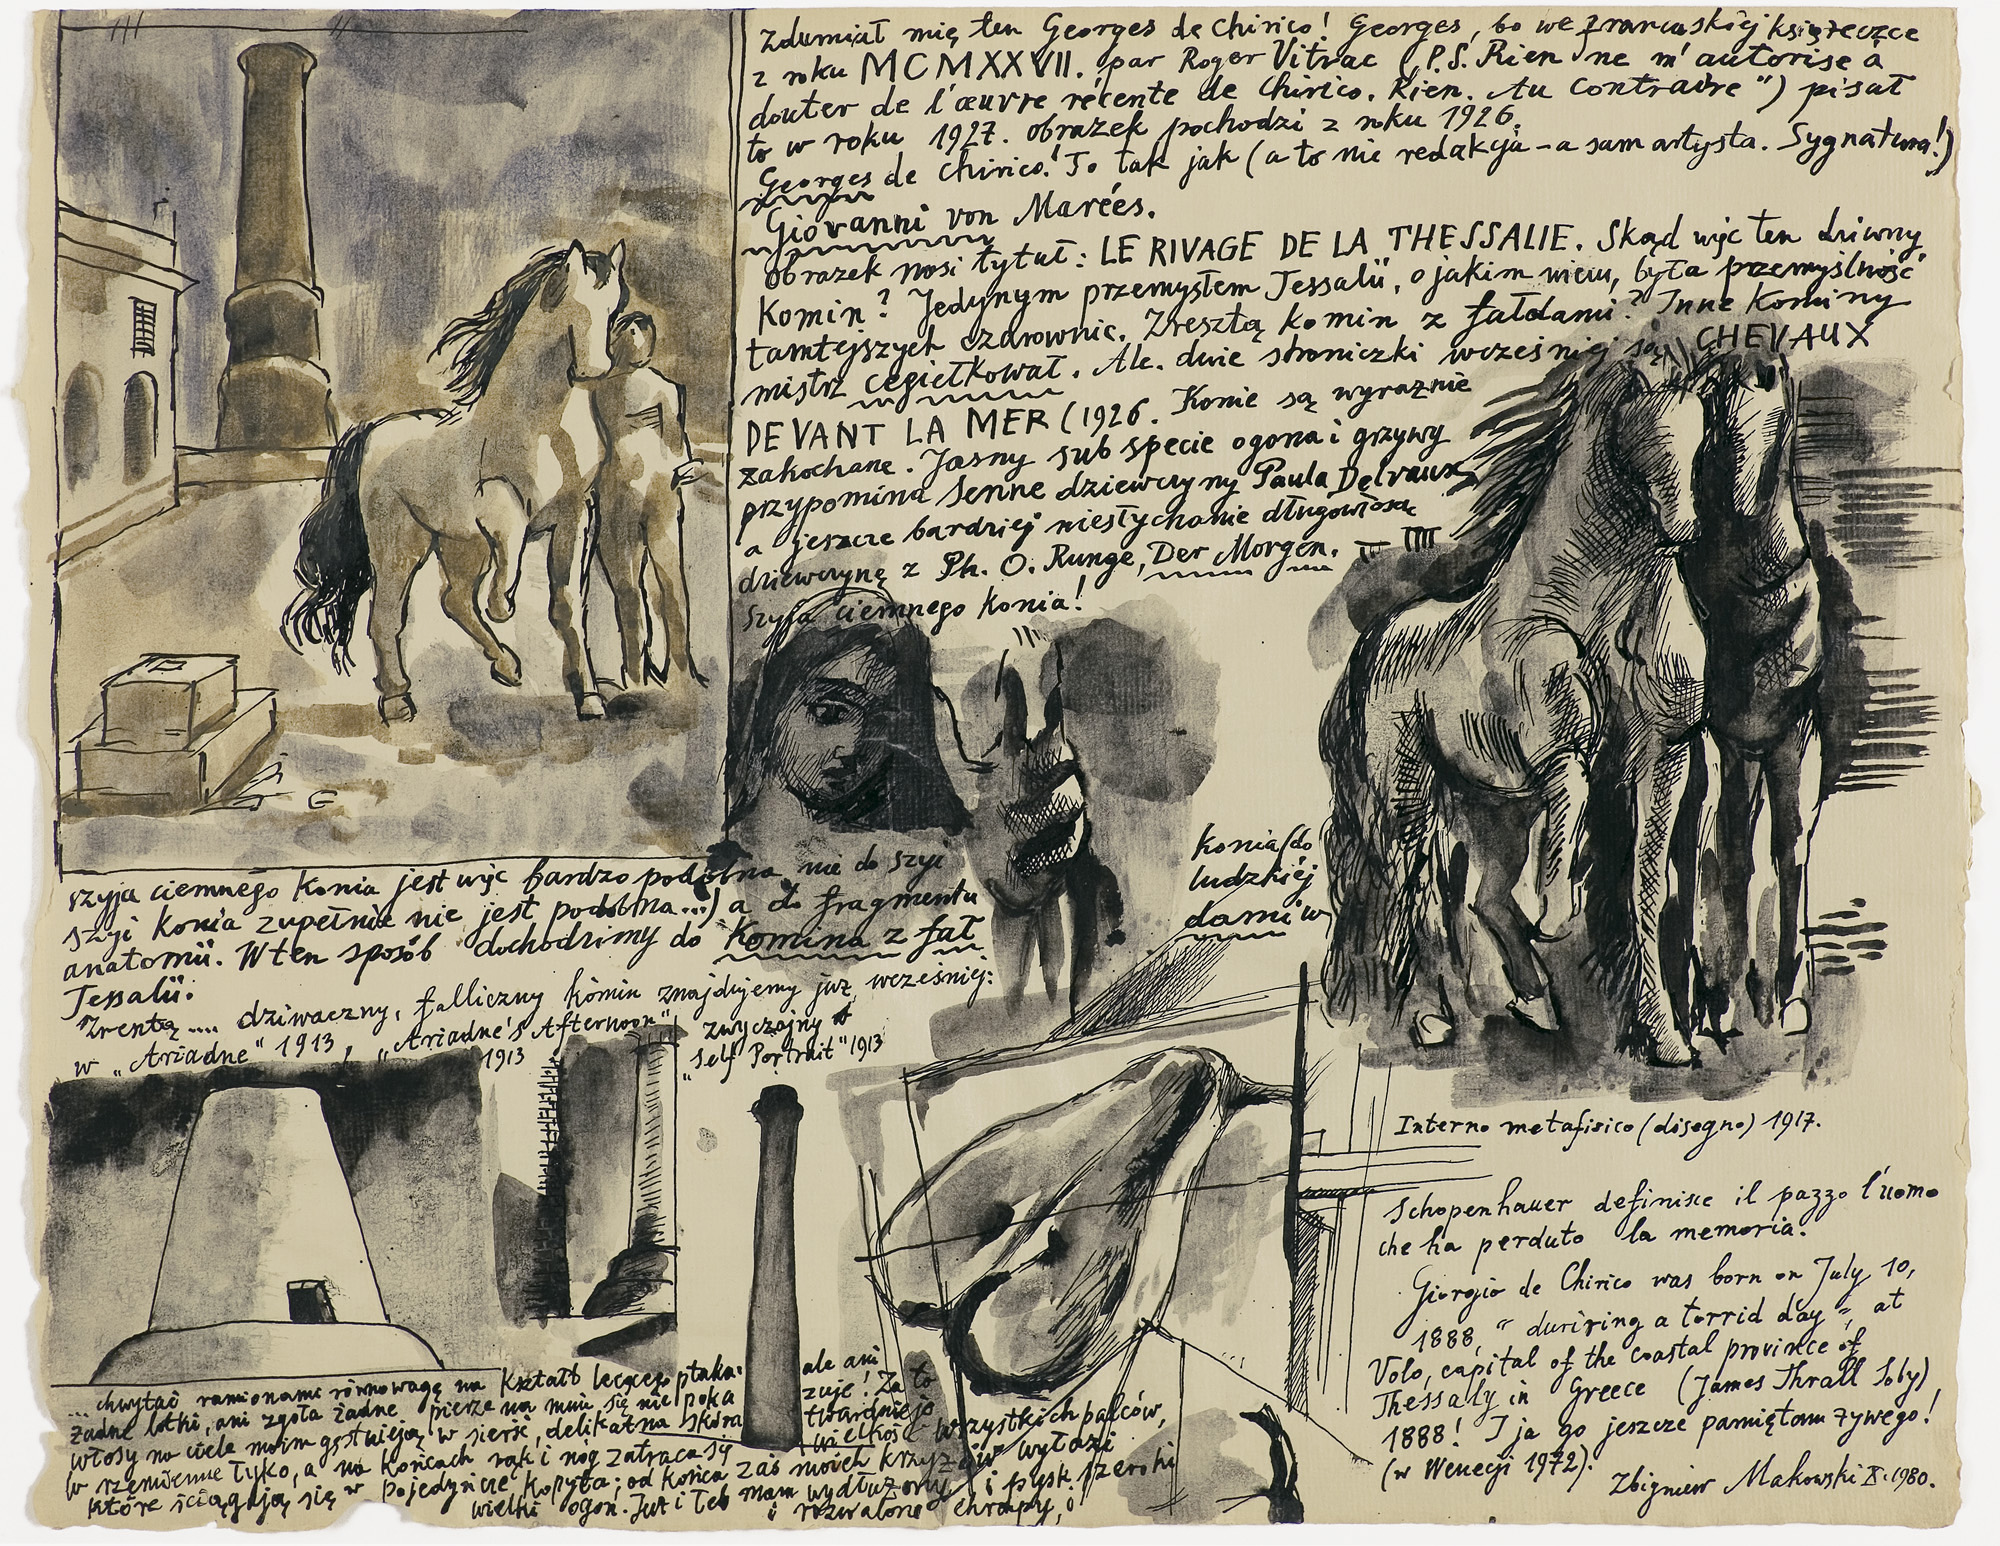 Zdumiał mię ten Georges de Chirico! Georges, bo we francuskiej książeczce
z roku MCMXXVII. par Roger Vitrac (P.S. Rien ne m'autorise à
douter de l'œuvre récente de Chirico. Rien. Au contraire") pisał
to w roku 1927. obrazek pochodzi z roku 1926.
Georges de Chirico! To tak jak (a to nie redakcja - a sam artysta. Sygnatura!)
Giovanni von Marées.
obrazek nosi tytuł: LE RIVAGE DE LA THESSALIE. Skąd więc ten dziwny
Komin? Jedynym przemysłem Tessalii, o jakim wiem, była przemyślność
tamtejszych czdrownic. Zresztą komin z fałdami? Inne Kominy
mistrz cegiełkował. Ale dwie stroniczki wcześniej są CHEVAUX
DEVANT LA MER (1926. Konie są wyraźnie
zakochane. Jasny sub specie ogona i grzywy
przypomina senne dziewczyny Paula Delvaux,
a jeszcze bardziej niesłychanie długowłosą
dziewczynę z Ph. O. Runge, Der Morgen.
Szyja ciemnego Konia!
szyja ciemnego Konia jest więc bardzo podobna nie do szyi
Konia (do
szyi Konia zupełnie nie jest podobna...) a do fragmentu
ludzkiej
anatomii. W ten sposób dochodzimy do Komina z fał
dami w
Tessalii.
Zrentą .... dziwaczny, falliczny komin znajdujemy już wcześniej:
w „Ariadne" 1913, „Ariadne's Afternoon"
1913
zwyczajny w
„Self Portrait" 1913
... chwytać ramionami równowagę na Kształt lecącego ptaka:
ale ani
żadne lotki, ani zgoła żadne pierze na mnie się nie poka
zuje! Za to
włosy na ciele moim gęstnieją w sierść, delikatna skóra
twardnieje
w rzemienne tylko, a na Końcach rąk i nóg zatraca się
wielkość wszystkich palców,
które ściągają się w pojedyncze Kopyta; od Końca zaś moich krzyżów wyłazi
wielki ogon. Już i łeb mam wydłużony i pysk szeroki
i rozwalone chrapy, i
Interno metafisico (disegno) 1917.
Schopenhauer definisce il pazzo l'uomo
che ha perduto la memoria.
Giorgio de Chirico was born on July 10,
1888, "duriring a torrid day", at
Volo, capital of the coastal province of
Thessaly in Greece (James Thrall Soby)
1888! I ja go jeszcze pamiętam żywego!
(w Wenecji 1972).
Zbigniew Makowski X.1980.